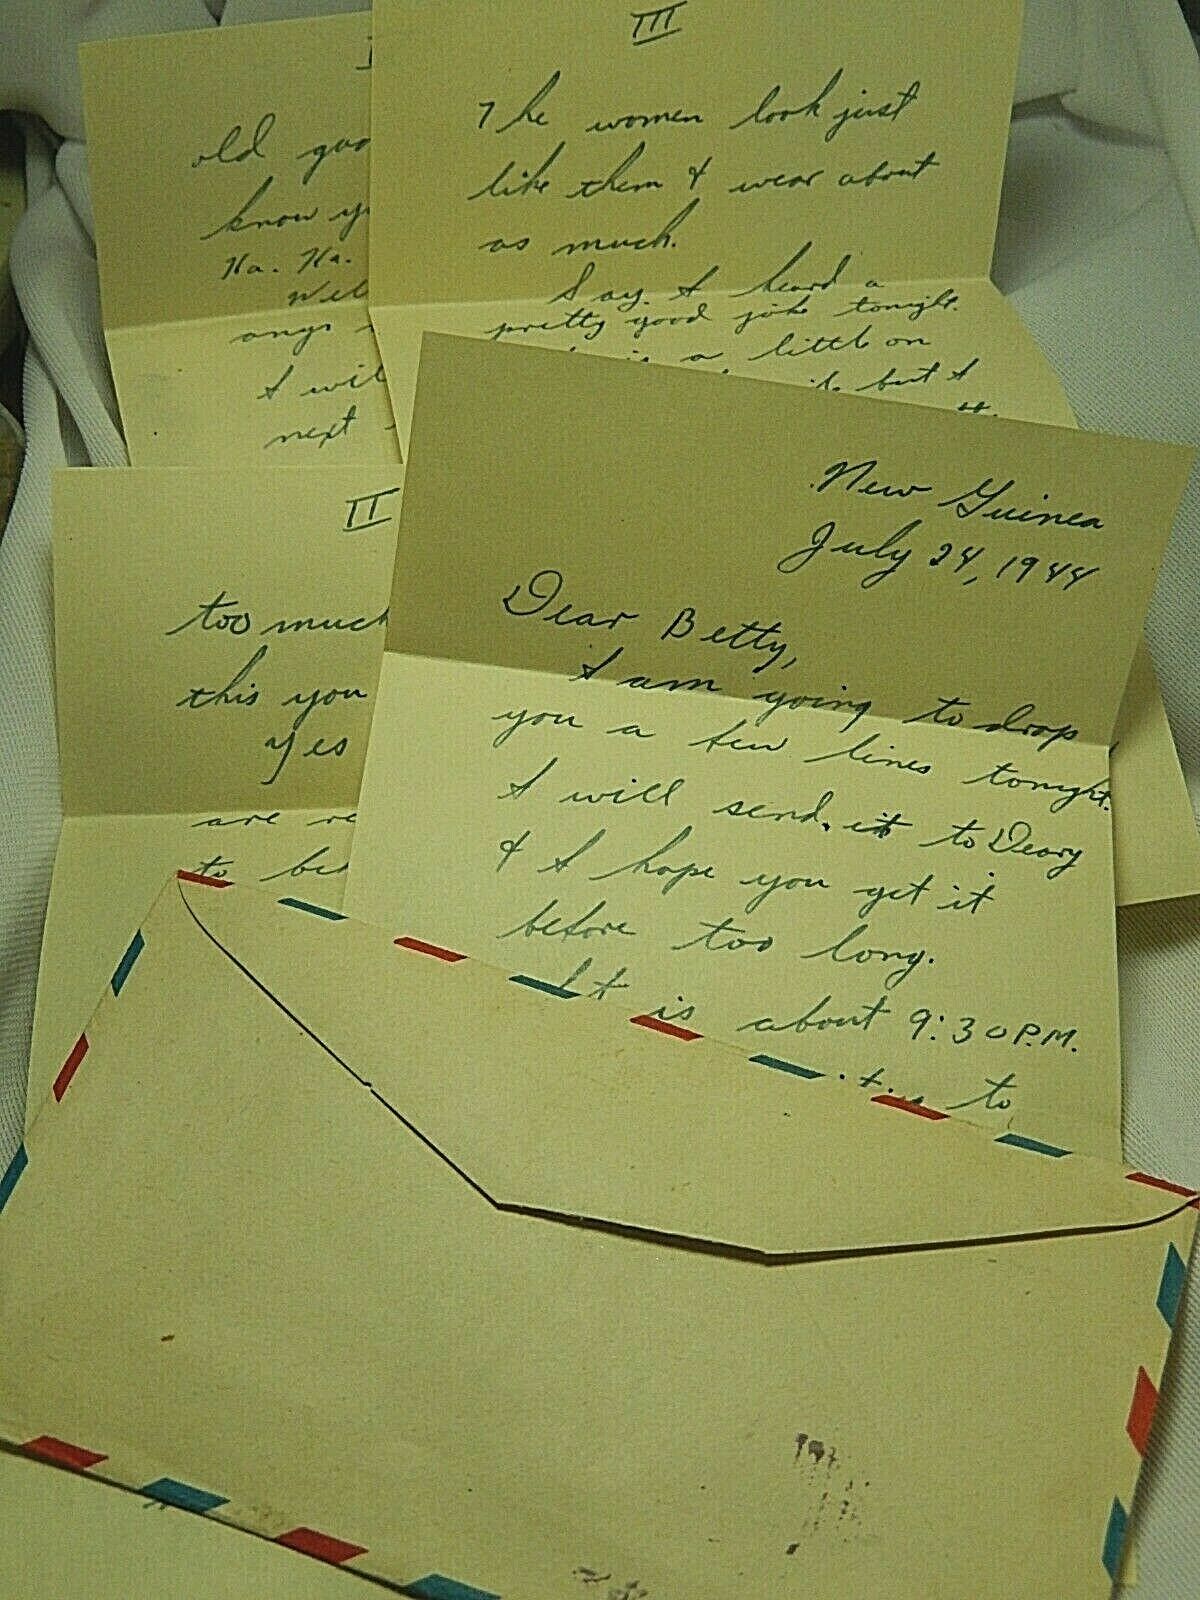 New Guinea
July 24, 1944
Dear Betty,
I am going to drop
you a few lines tonight.
I will send it to Deary
& I hope you get it
before too long.
It is about 9:30 P.M.
to
II
too much
this you
Yes
are re
to be
III
The women look just
like them & wear about
as much.
Say. I heard a
pretty good joke tonight.
is a little on
but I
old goo
know yo
Ha. Ha.
Wel
I wil
next